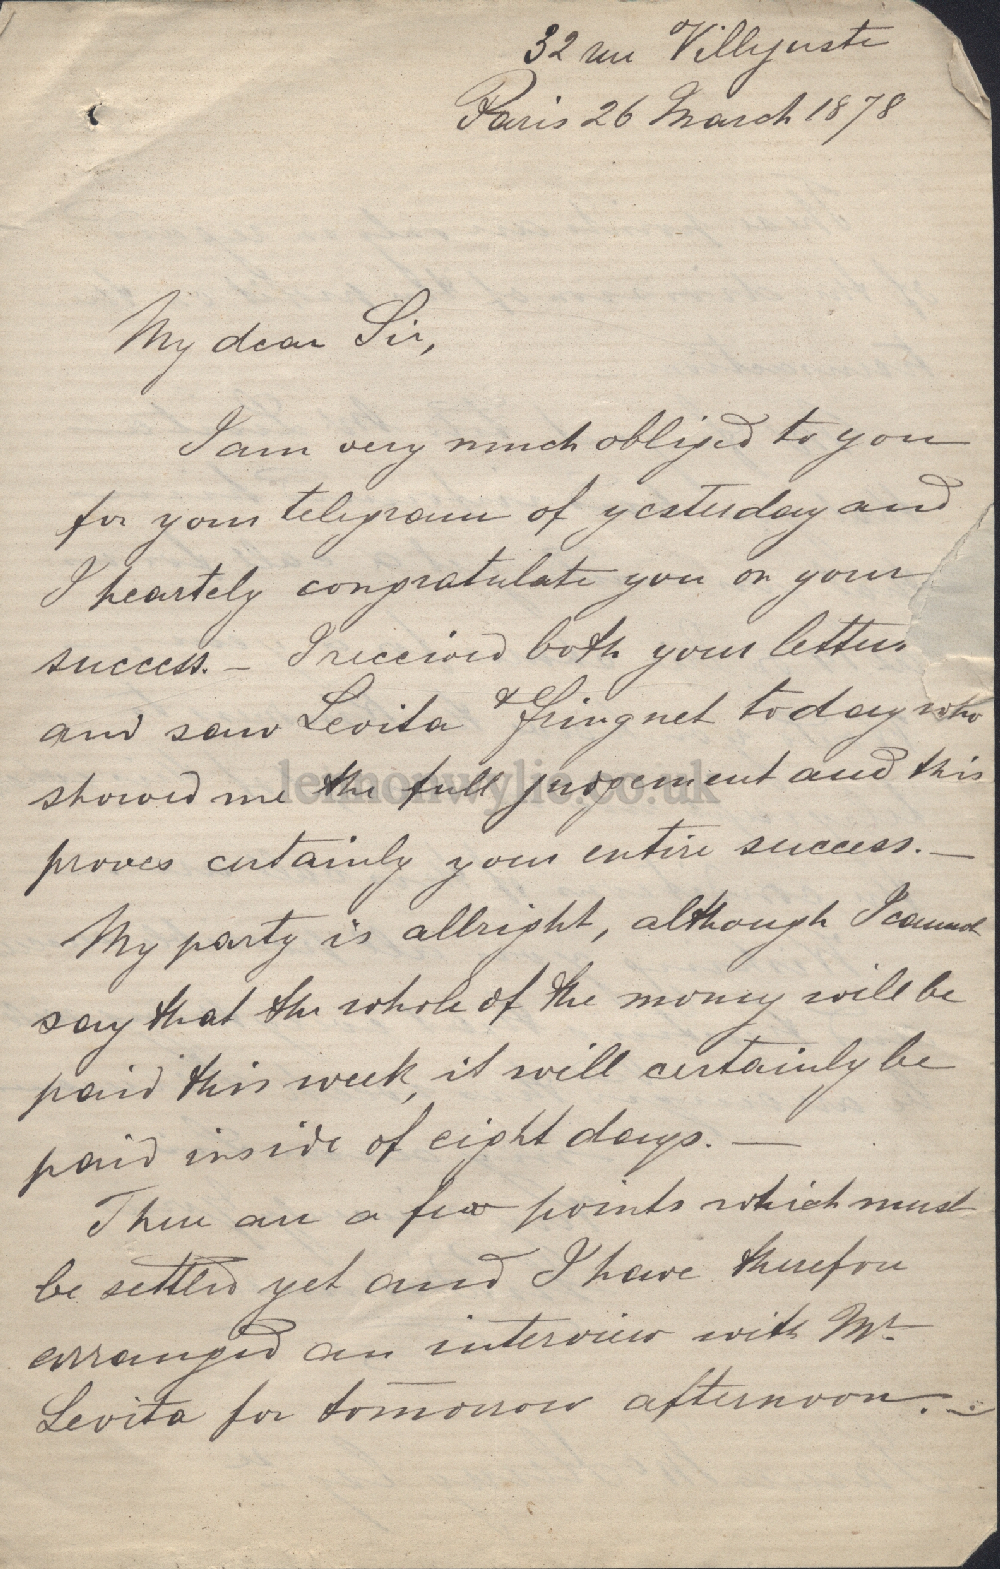 32 rue Villejuste
Paris 26 March 1878
My dear Sir,
I am very much obliged to you
for your telegram of yesterday and
I heartely congratulate you on your
success. – I received both your letters
and saw Levita & Gringnet today who
showed me the full judgement and this
proves certainly your entire success. –
My party is allright, although I cannot
say that the whole of the money will be
paid this week, it will certainly be
paid inside of eight days. –
There are a few points which must
be settled yet and I have therefore
arranged an interview with Mr
Levita for tomorrow afternoon. –
lennonwylie.co.uk